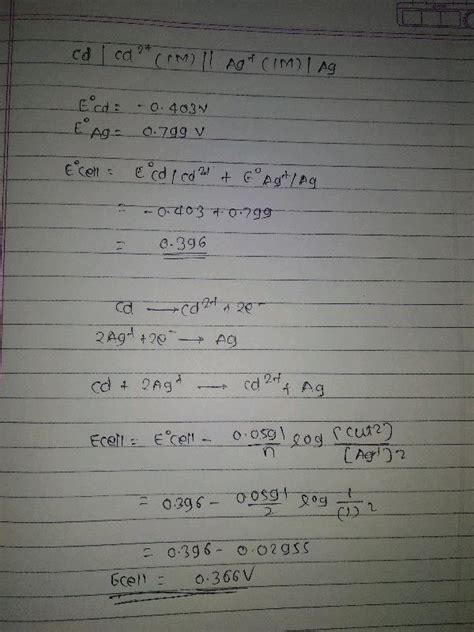 Cd | Cd²⁺ (1M) || Ag⁺ (1M) | Ag
E°Cd = -0.403V
E°Ag = 0.799 V
E°cell = E°Cd/Cd²⁺ + E°Ag⁺/Ag
= -0.403 + 0.799
= 0.396
Cd ⟶ Cd²⁺ + 2e⁻
2Ag⁺ + 2e⁻ ⟶ Ag
Cd + 2Ag⁺ ⟶ Cd²⁺ + Ag
Ecell = E°cell - 0.0591/n log [Cu+2]/[Ag⁺]2
= 0.396 - 0.0591/2 log 1/(1)2
= 0.396 - 0.02955
Ecell = 0.366V